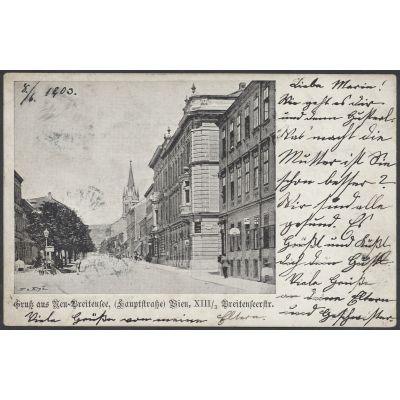 8/6. 1903.
Liebe Marie!
Wie geht es dir
und dem Gusterl
Was macht die
Mutter ist Sie
schon besser?
Wir sind alle
gesund. Es
Grüßt und Küßt
dein
Viele Grüße
an deine Eltern
und Geschwister.
Gruß aus Neu-Breitensee, (Hauptstraße) Wien, XIII/2 Breitenseerstr.
Viele Grüße von meine Eltern.